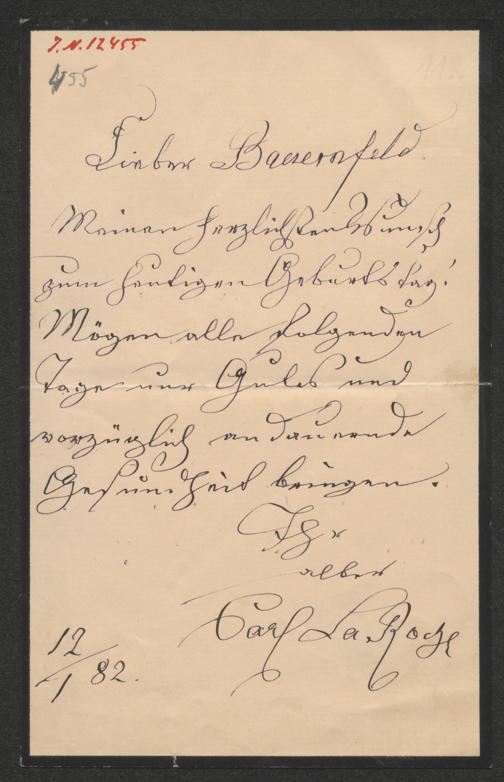 J.N. 12455
455
112
Lieber Bauernfeld.
Meinen herzlichsten Wunsch
zum heutigen Geburtstag!
Mögen alle folgenden
Tage nur Gutes und
vorzüglich andauernde
Gesundheit bringen.
Ihr
alter
Carl La Roche
12/1 82.